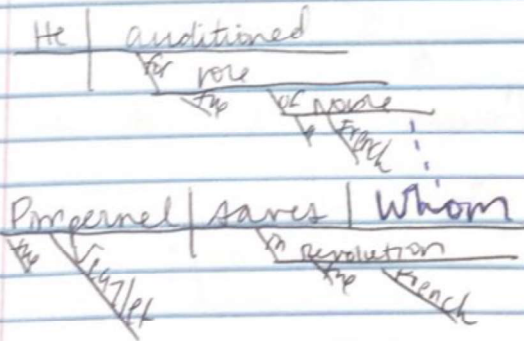 He auditioned
for role
the of noble
a French
Pimpernel saves whom
the Scarlet in revolution
the French